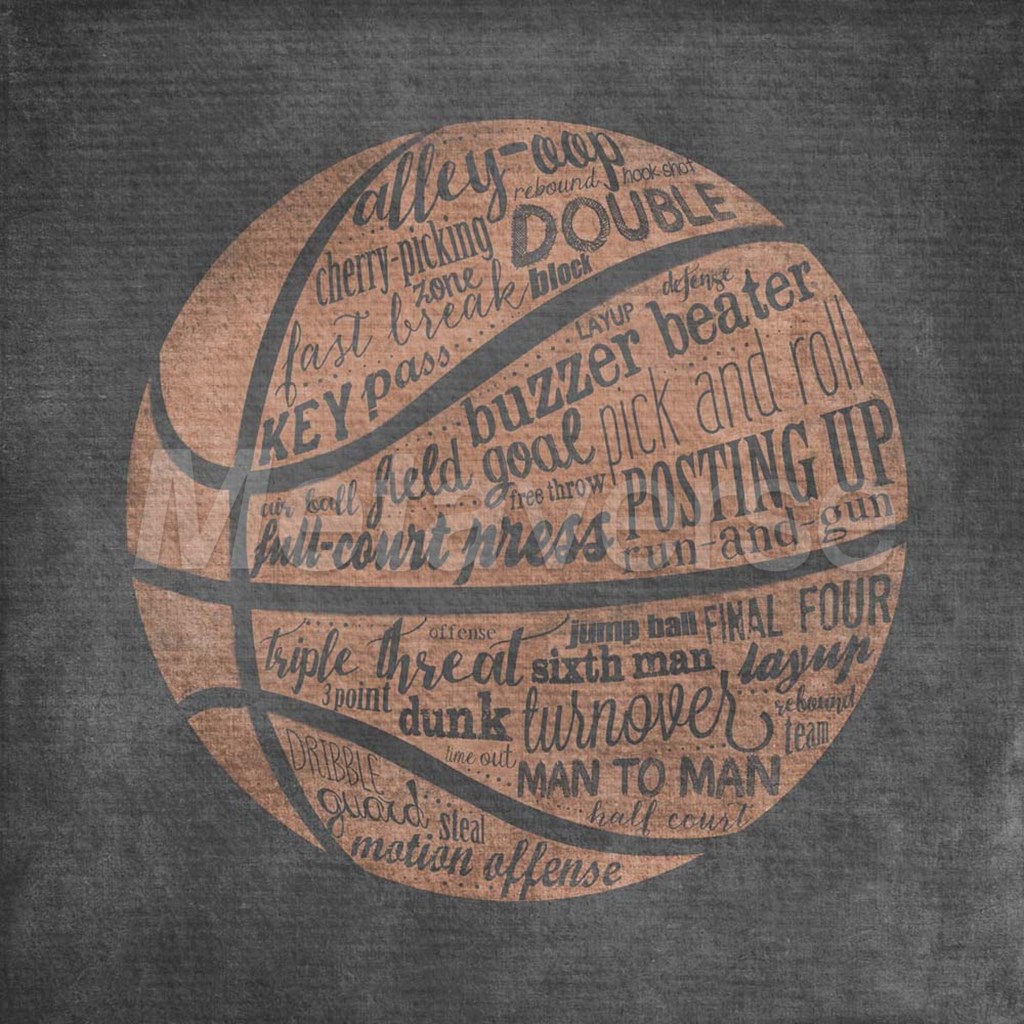 alley-oop
rebound
hook shot
DOUBLE
cherry-picking
zone
block
fast break
KEY pass
defense
LAYUP
buzzer beater
pick and roll
field goal
free throw
POSTING UP
air ball
full-court press
run-and-gun
Metaverse
offense
jump ball
FINAL FOUR
triple threat
sixth man
layup
3 point
dunk
turnover
rebound
team
time out
MAN TO MAN
half court
DRIBBLE
guard
steal
motion offense